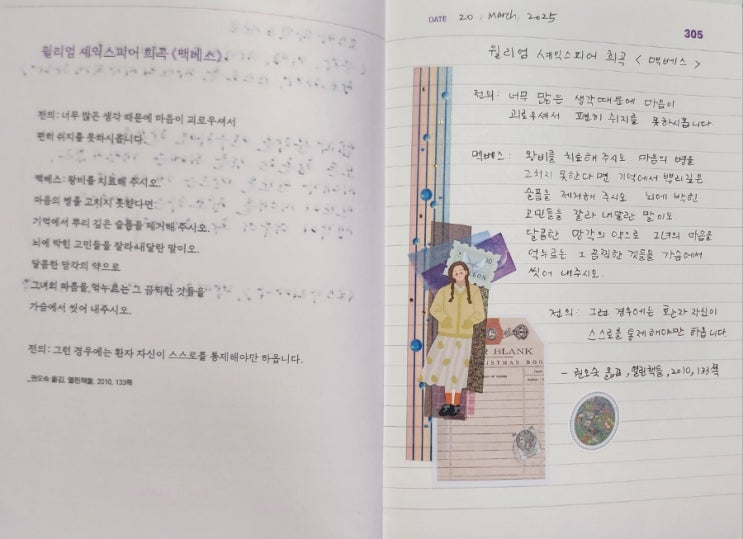 윌리엄 셰익스피어 희곡 《맥베스》
전의 : 너무 많은 생각 때문에 마음이 괴로우셔서
편히 쉬지를 못하시옵니다.
맥베스 : 왕비를 치료해 주시오.
마음의 병을 고치지 못한다면
기억에서 뿌리 깊은 슬픔을 제거해 주시오.
뇌에 박힌 고민들을 잘라 내달란 말이오.
달콤한 망각의 약으로
그녀의 마음을 억누르는 그 끔찍한 것들을
가슴에서 씻어 내주시오.
전의 : 그런 경우에는 환자 자신이 스스로를 통제해야만 하옵니다.
_권오숙 옮김, 열린책들, 2010, 133쪽
DATE 20, March, 2025
305
윌리엄 셰익스피어 희곡 < 맥베스 >
전의 : 너무 많은 생각때문에 마음이
괴로우셔서 편히 쉬지를 못하시옵니다
멕베스 : 왕비를 치료해 주시오 마음의 병을
고치지 못한다면 기억에서 뿌리깊은
슬픔을 제거해 주시오 뇌에 박힌
고민들을 잘라 내달란 말이오
달콤한 망각의 약으로 그녀의 마음을
억누르는 그 끔찍한 것들을 가슴에서
씻어 내주시오.
전의 : 그런 경우에는 환자 자신이
스스로를 통제해야만 하옵니다.
- 권오숙 옮김, 열린책들, 2010, 133쪽
R BLANK
RISTMAS BOO